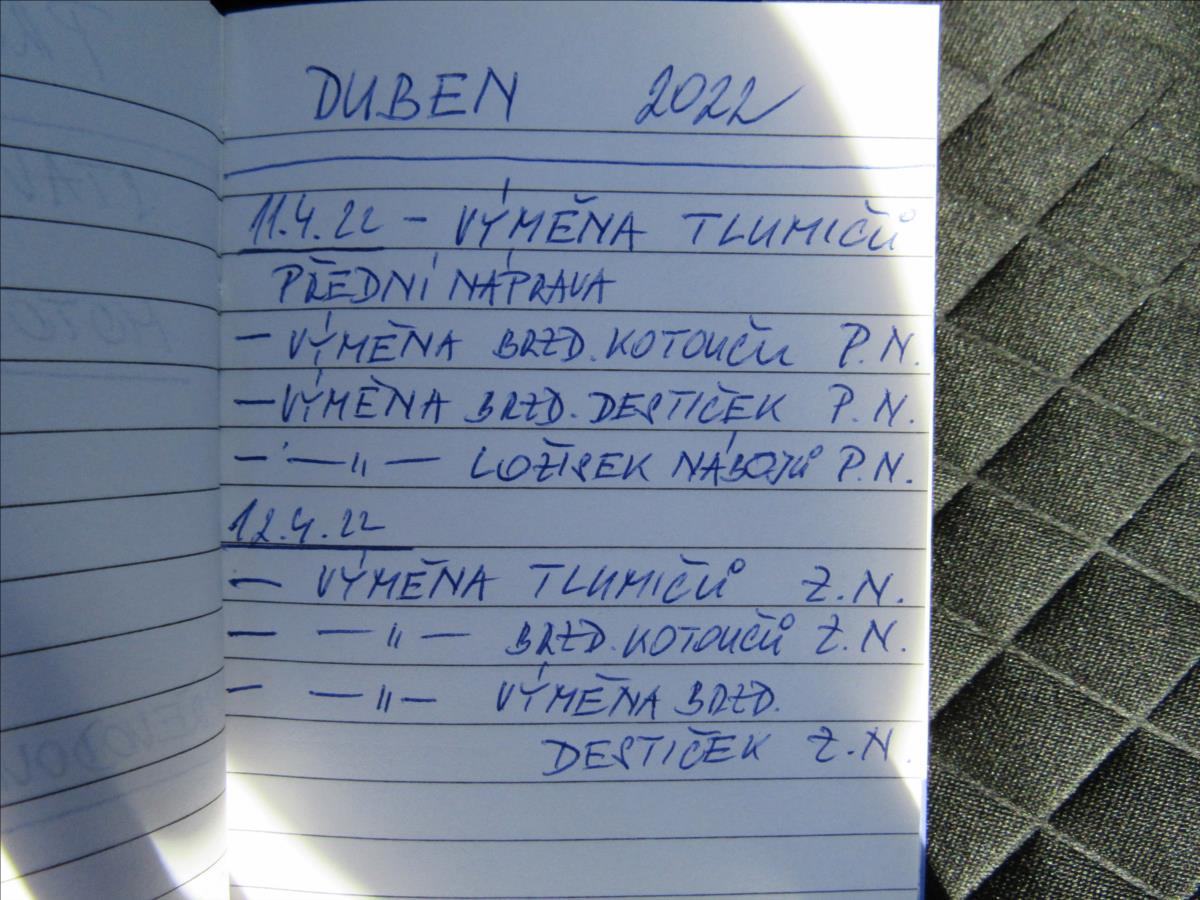 DUBEN 2022
11.4.22 - VÝMĚNA TLUMIČŮ
PŘEDNÍ NÁPRAVA
- VÝMĚNA BRZD. KOTOUČŮ P.N.
- VÝMĚNA BRZD. DESTIČEK P.N.
- —"— LOŽISEK NÁBOJŮ P.N.
12.4.22
- VÝMĚNA TLUMIČŮ Z.N.
- —"— BRZD. KOTOUČŮ Z.N.
- —"— VÝMĚNA BRZD.
DESTIČEK Z.N.